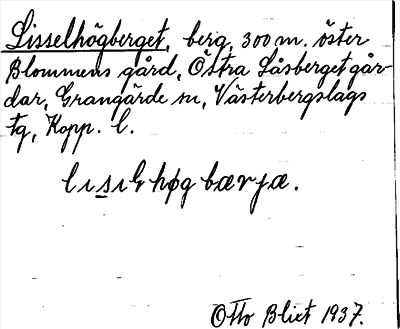 Lisselhögberget, berg, 300 m. öster
Blommens gård, Östra Låsberget går-
dar, Grangärde sn, Västerbergslags
tg, Kopp. l.
høg bærjæ.
Otto Blixt 1937.